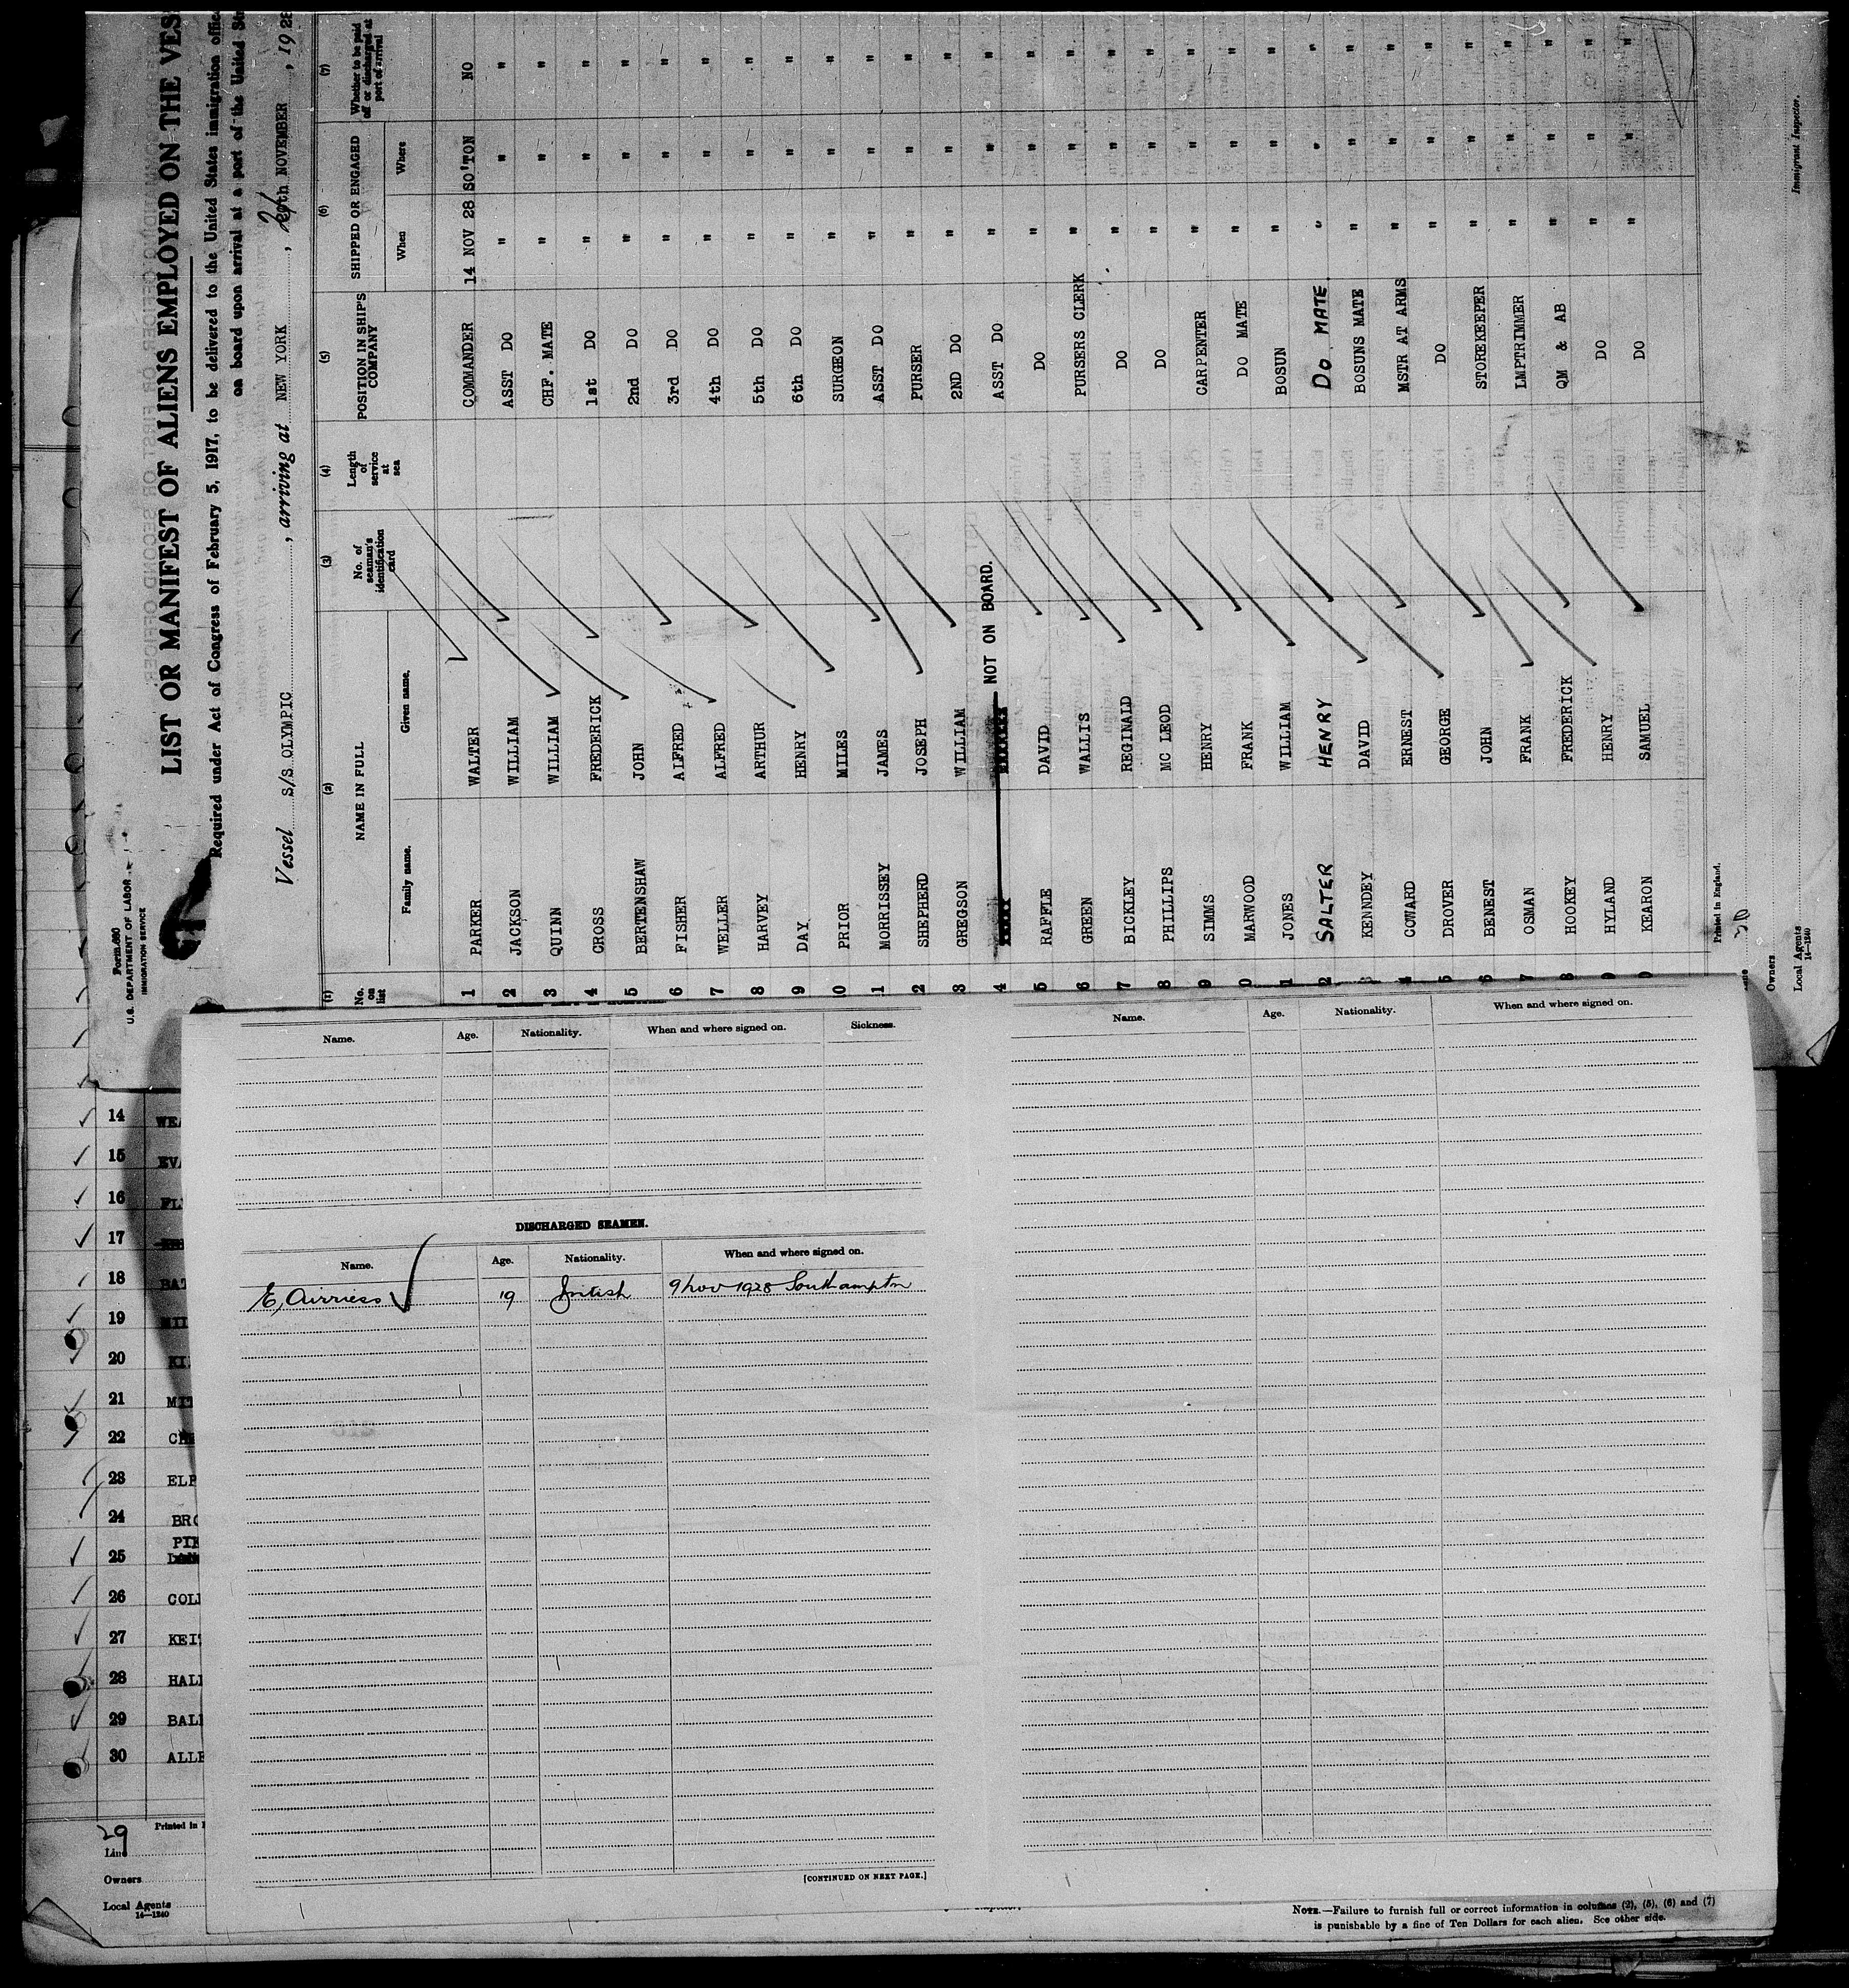 Form 680
U.S. DEPARTMENT OF LABOR
IMMIGRATION SERVICE
LIST OR MANIFEST OF ALIENS EMPLOYED ON THE VES
Required under Act of Congress of February 5, 1917, to be delivered to the United States immigration offic
on board upon arrival at a port of the United St
Vessel S/S OLYMPIC, arriving at NEW YORK, NOVEMBER, 1928
(1) (2) (3) (4) (5) (6) (7)
No. on list NAME IN FULL No. of seaman's identification card Length of service at sea POSITION IN SHIP'S COMPANY SHIPPED OR ENGAGED Whether to be paid off or discharged at port of arrival
Family name. Given name. When Where
1 PARKER WALTER COMMANDER 14 NOV 28 SO'TON NO
2 JACKSON WILLIAM ASST DO " " "
3 QUINN WILLIAM CHF. MATE " " "
4 CROSS FREDERICK 1st DO " " "
5 BERTENSHAW JOHN 2nd DO " " "
6 FISHER ALFRED 3rd DO " " "
7 WELLER ALFRED 4th DO " " "
8 HARVEY ARTHUR 5th DO " " "
9 DAY HENRY 6th DO " " "
0 PRIOR MILES SURGEON " " "
1 MORRISSEY JAMES ASST DO " " "
2 SHEPHERD JOSEPH PURSER " " "
3 GREGSON WILLIAM 2ND DO " " "
4 NOT ON BOARD. ASST DO " " "
5 RAFFLE DAVID DO " " "
6 GREEN WALLIS PURSERS CLERK " " "
7 BICKLEY REGINALD DO " " "
8 PHILLIPS MC LEOD DO " " "
9 SIMMS HENRY CARPENTER " " "
0 MARWOOD FRANK DO MATE " " "
1 JONES WILLIAM BOSUN " " "
2 SALTER HENRY DO MATE " " "
3 KENNDEY DAVID BOSUNS MATE " " "
4 COWARD ERNEST MSTR AT ARMS " " "
5 DROVER GEORGE DO " " "
6 BENEST JOHN STOREKEEPER " " "
7 OSMAN FRANK LMPTRIMMER " " "
8 HOOKEY FREDERICK QM & AB " " "
9 HYLAND HENRY DO " " "
0 KEARON SAMUEL DO " " "
Printed in England.
Owners
Local Agents
14—1240
Immigrant Inspector.
Name. Age. Nationality. When and where signed on. Sickness.
DISCHARGED SEAMEN.
Name. Age. Nationality. When and where signed on.
E, Airriess 19 British 9 Nov 1928 Southampton
[CONTINUED ON NEXT PAGE.]
Name. Age. Nationality. When and where signed on.
14 WEA
15 EVA
16 FL
17
18 BAT
19 MIL
20 KI
21 MIT
22
23 ELF
24 BRO
PIK
25
26 COLL
27 KEIT
28 HALL
29 BALL
30 ALLE
29
Printed in
Line
Owners
Local Agents
14—1240
Inspector.
NOTE.—Failure to furnish full or correct information in columns (2), (5), (6) and (7)
is punishable by a fine of Ten Dollars for each alien. See other side.